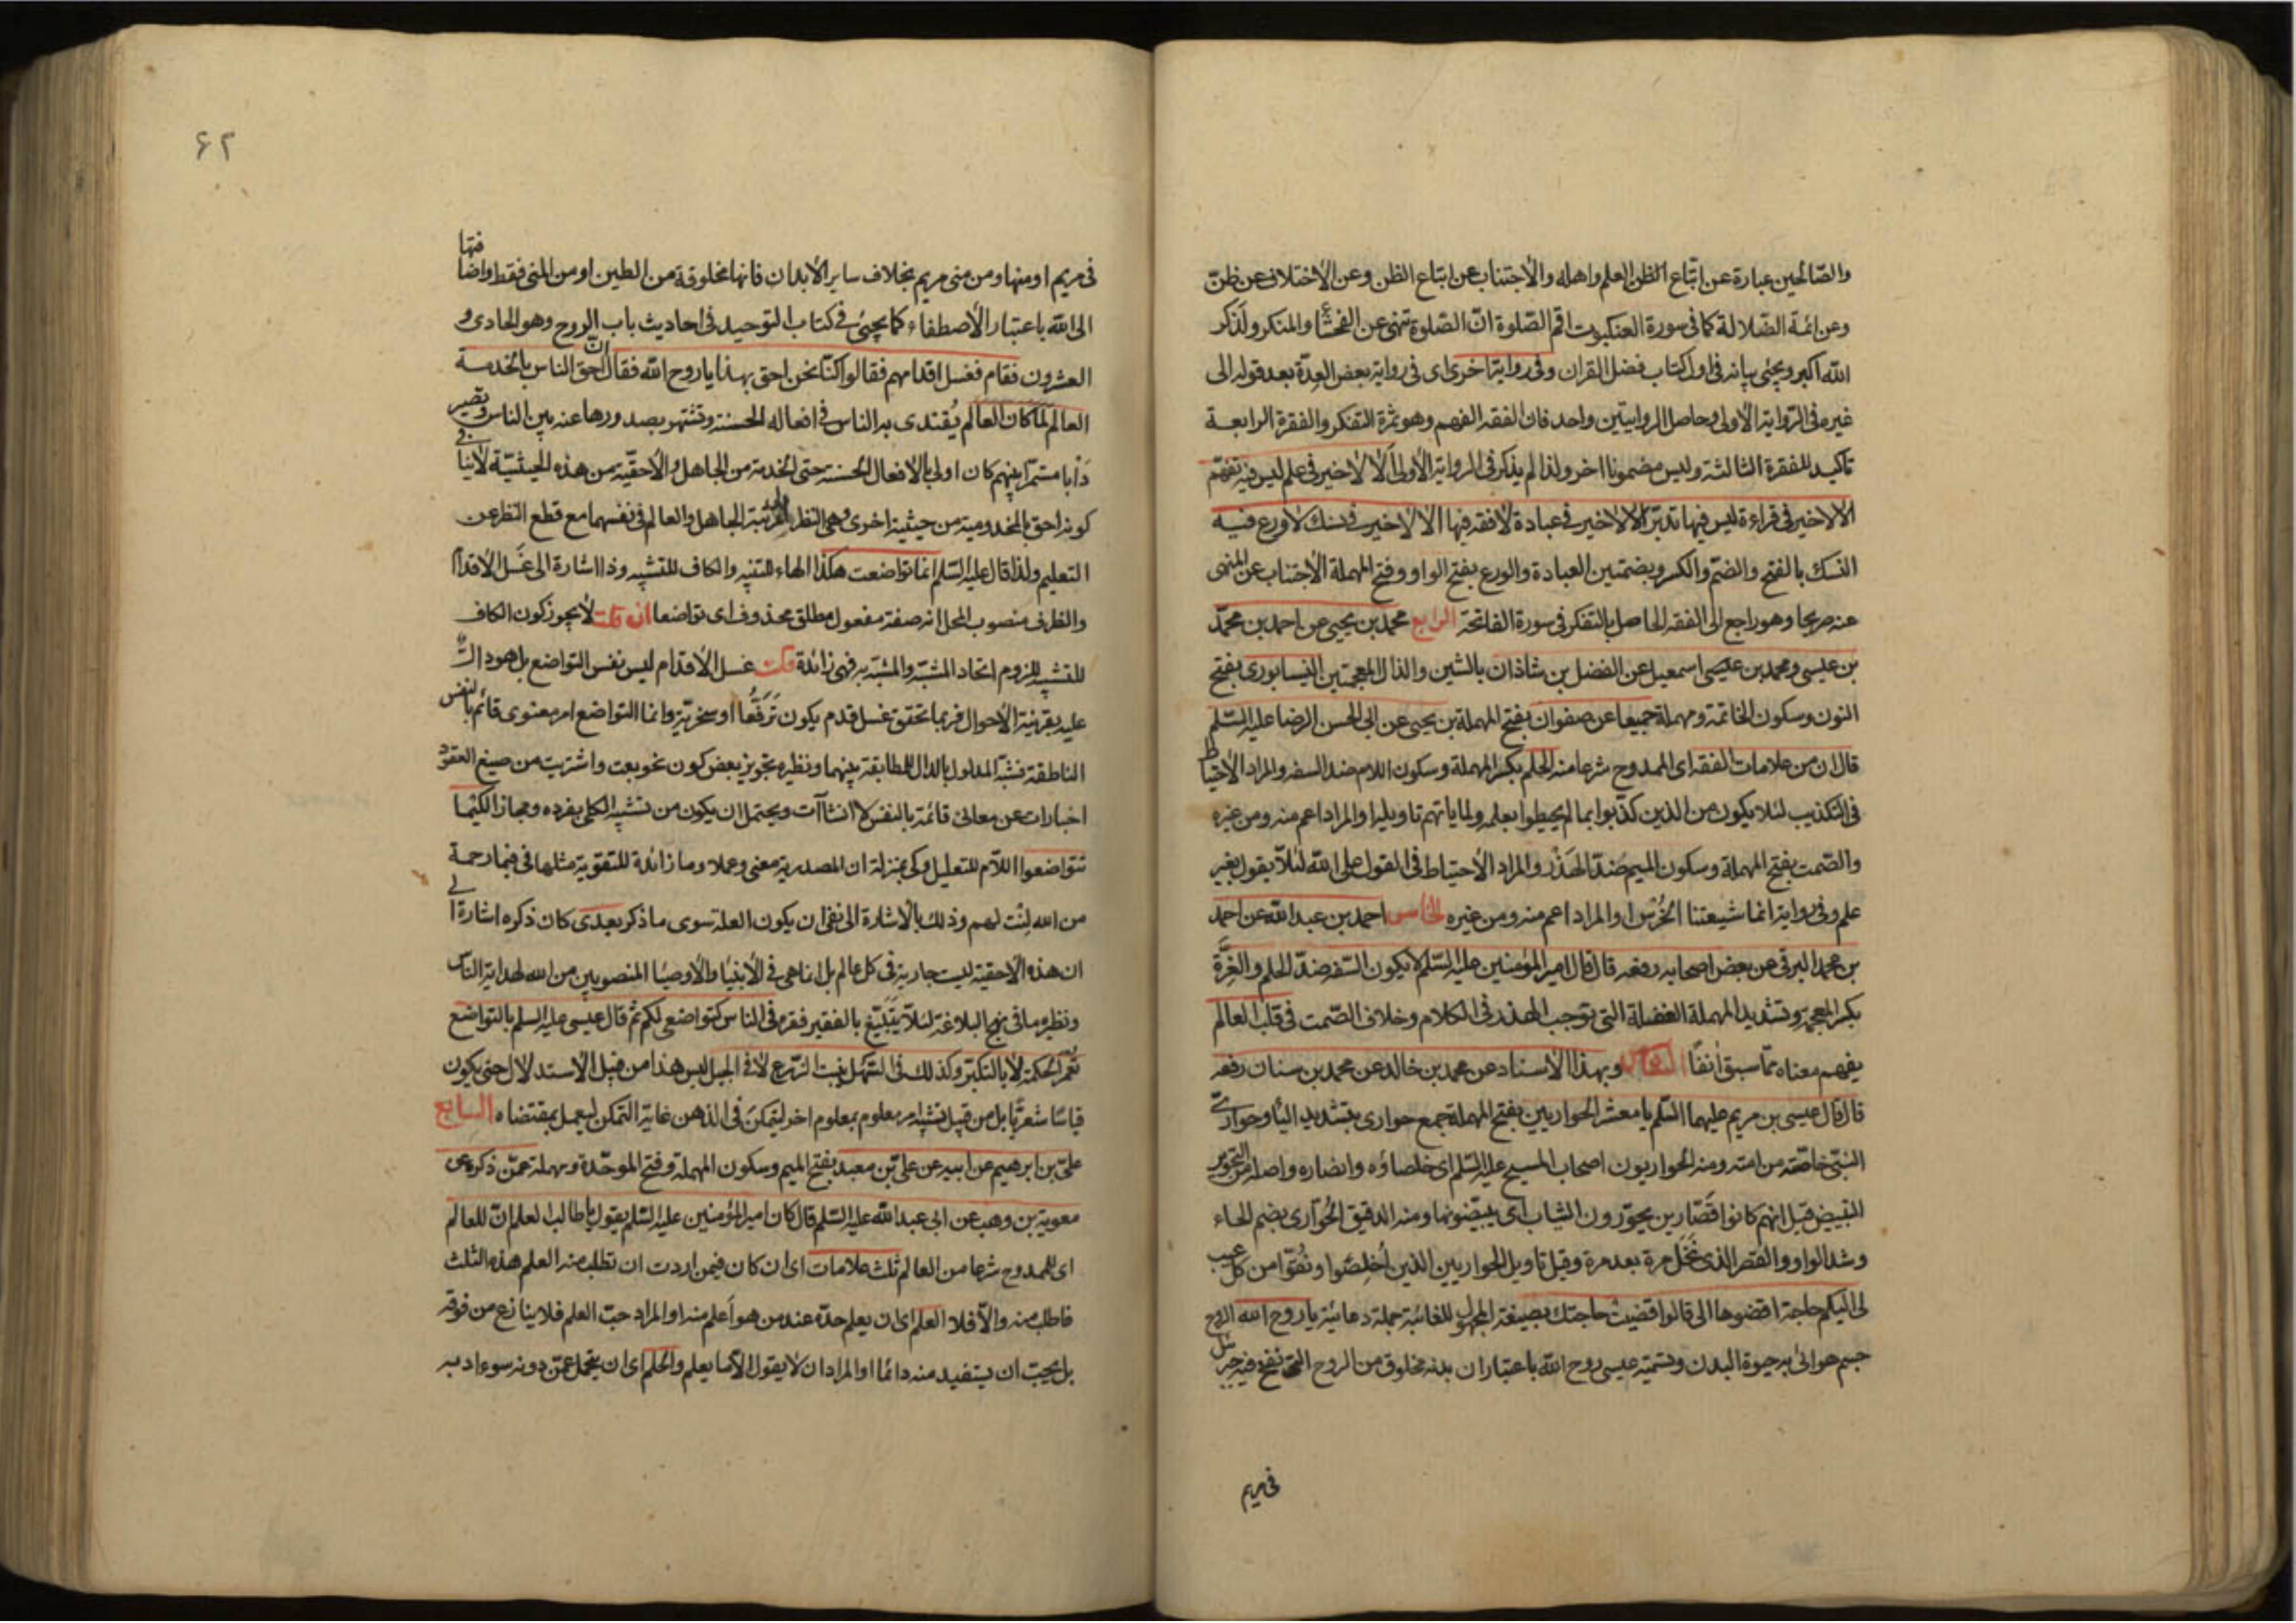 والصّالحين عبارة عن اتّباع الظن العلم واهله والاجتناب عن اتباع الظن وعن الاختلاف عن ظنّ
وعن ائمة الضلالة كما فى سورة العنكبوت اقم الصّلوة انّ الصّلوة تنهى عن الفحشاء والمنكر ولذكر
الله اكبر ويجئ بيانه فى اول كتاب فضل القران وفى رواية اخرى اى فى رواية بعض العدّة بعد قوله الى
غيره فى الرّواية الاولى وحاصل الروايتين واحد فان الفقه الفهم وهو ثمرة التفكر والفقرة الرابعة
تاكيد للفقرة الثالثة وليس مضمونا اخر ولذا لم يذكر فى الرواية الاولى الا لا خير فى علم ليس فيه تفهّم
الا لا خير فى قراءة ليس فيها تدبّر الا لا خير فى عبادة لا فقه فيها الا لا خير فى نسك لا ورع فيه
النسك بالفتح والضمّ والكسر وبضمتين العبادة والورع بفتح الواو وفتح المهملة الاجتناب عن المنهى
عنه صريحا وهو راجع الى الفقه الحاصل بالتفكر فى سورة الفاتحة الرابع محمد بن يحيى عن احمد بن محمّد
بن عيسى ومحمد بن اسمعيل عن الفضل بن شاذان بالشين والذال المعجمتين النيسابورى بفتح
النون وسكون الخاتمة ومهملة جميعا عن صفوان بفتح المهملة بن يحيى عن ابى الحسن الرضا عليه السّلم
قال ان من علامات الفقه اى الممدوح شرعا منه الحلم بكسر المهملة وسكون اللام ضد السفه والمراد الاحتياط
فى التكذيب لئلا يكون من الذين كذّبوا بما لم يحيطوا بعلمه ولما ياتهم تاويله او المراد اعم منه ومن غيره
والصّمت بفتح المهملة وسكون الميم ضدّ الهَذْر والمراد الاحتياط فى القول على الله لئلّا يقول بغير
علم وفى رواية انما شيعتنا الخُرْس او المراد اعم منه ومن غيره الخامس احمد بن عبد الله عن احمد
بن محمد البرقى عن بعض اصحابه رفعه قال قال امير المؤمنين عليه السّلم لا يكون السّفه ضدّ الحلم والغِرَّة
بكسر المعجمة وتشديد المهملة الغفلة التى توجب الهذر فى الكلام وخلاف الصّمت فى قلب العالم
يفهم معناه ممّا سبق آنفًا السادس وبهذا الاسناد عن محمد بن خالد عن محمد بن سنان رفعه
قال قال عيسى بن مريم عليهما السّلم يا معشر الحواريين بفتح المهملة جمع حوارى بتشديد الياء وحوارىّ
النبىّ خاصّته من امته ومنه الحواريون اصحاب المسيح عليه السّلم اى خلصاؤه وانصاره واصله من التحوير
التبييض قيل انهم كانوا قصّارين يحوّرون الثياب اى يبيّضونها ومنه الدقيق الحُوّارى بضم الحاء
وشد الواو والقصر الذى نُخِل مرة بعد مرة وقيل تاويل الحواريين الذين اُخلِصُوا ونُقّوا من كل عيب
لى اليكم حاجة اقضوها الى قالوا قضيت حاجتك بصيغة المجهول للغائبة جملة دعائية يا روح الله الروح
جسم هوائى به حيوة البدن وتسمية عيسى روح الله باعتبار ان بدنه مخلوق من الروح التى نفخ فيه جبرئيل
فى مريم
۶۲
فى مريم او منها ومن منى مريم بخلاف ساير الابدان فانها مخلوقة من الطين او من المنى فقط واضافتها
الى الله باعتبار الاصطفاء كما يجيئ فى كتاب التوحيد فى احاديث باب الروح وهو الحادى و
العشرون فقام فغسل اقدامهم فقالوا كنّا نحن احق بهذا يا روح الله فقال انّ احق الناس بالخدمة
العالم لما كان العالم يُقتدى به الناس فى افعاله الحسنة وتشتهر بصدورها عنه بين الناس وتصير
دَاْبا مستمرّا بينهم كان اولى بالافعال الحسنة حتى الخدمة من الجاهل والاحقّية من هذه الحيثيّة لا ينافى
كونه احق بالمخدومية من حيثية اخرى وهى النظر الى مرتبة الجاهل والعالم فى نفسهما مع قطع النظر عن
التعليم ولذا قال عليه السّلم انما تواضعت هكذا الهاء للتنبيه والكاف للتشبيه وذا اشارة الى غَسل الاقدام
والظرف منصوب المحل انه صفة مفعول مطلق محذوف اى تواضعا ان قلت لا يجوز كون الكاف
للتشبيه للزوم اتحاد المشبّه والمشبّه به فهى زائدة قلت غسل الاقدام ليس نفس التواضع بل هو دالّ
عليه بقرينة الاحوال فربما تحقق غسل قدم يكون تَرَفُّعا او سخريّة وانما التواضع امر معنوى قائم بالنفس
الناطقة فشبّه المدلول بالدال للمطابقة بينهما ونظيره تجويز بعض كون نحو بعت واشتريت من صيغ العقود
اخبارات عن معانى قائمة بالنفس لا انشاآت ويحتمل ان يكون من تشبيه الكلى بفرده ومجازا لكيما
تتواضعوا اللّام للتعليل وكى بمنزلة ان المصدرية معنى وعملا وما زائدة للتقوية مثلها فى فبما رحمة
من الله لِنْت لهم وذلك بالاشارة الى نفى ان يكون العلة سوى ما ذكر بعدى كان ذكره اشارة الى
ان هذه الاحقية ليست جارية فى كل عالم بل انما هى فى الانبياء والاوصيا المنصوبين من الله لهداية الناس
ونظيره ما فى نهج البلاغة لئلّا يَتَبَيَّغ بالفقير فقره فى الناس كتواضعى لكم ثم قال عيسى عليه السلم بالتواضع
تُعْمَر الحكمة لا بالتكبّر وكذلك فى السّهل ينبت الزّرع لا فى الجبل ليس هذا من قبيل الاستدلال حتى يكون
قياسًا شعريًّا بل من قبيل تشبيه امر معلوم بمعلوم اخر ليتمكن فى الذهن غاية التمكن ليعمل بمقتضاه السابع
علىّ بن ابرهيم عن ابيه عن علىّ بن معبد بفتح الميم وسكون المهملة وفتح الموحّدة ومهملة عمّن ذكره عن
معوية بن وهب عن ابى عبد الله عليه السّلم قال كان امير المؤمنين عليه السّلم يقول يا طالب العلم انّ للعالم
اى الممدوح شرعا من العالم ثلث علامات اى ان كان فيمن اردت ان تطلب منه العلم هذه الثلث
فاطلب منه والّا فلا العلم اى ان يعلم حدّه عند من هو اَعلم منه او المراد حبّ العلم فلا ينازع من فوقه
بل يحبّ ان يستفيد منه دائما او المراد ان لا يقول الّا ما يعلم والحلم اى ان يتحمل عمّن دونه سوء ادبه